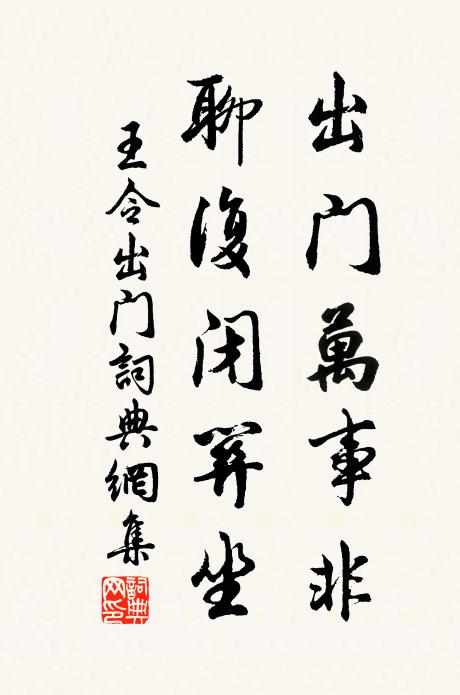 出门萬事非
聊復闭關坐
王令出门詞典網集
詞典网印